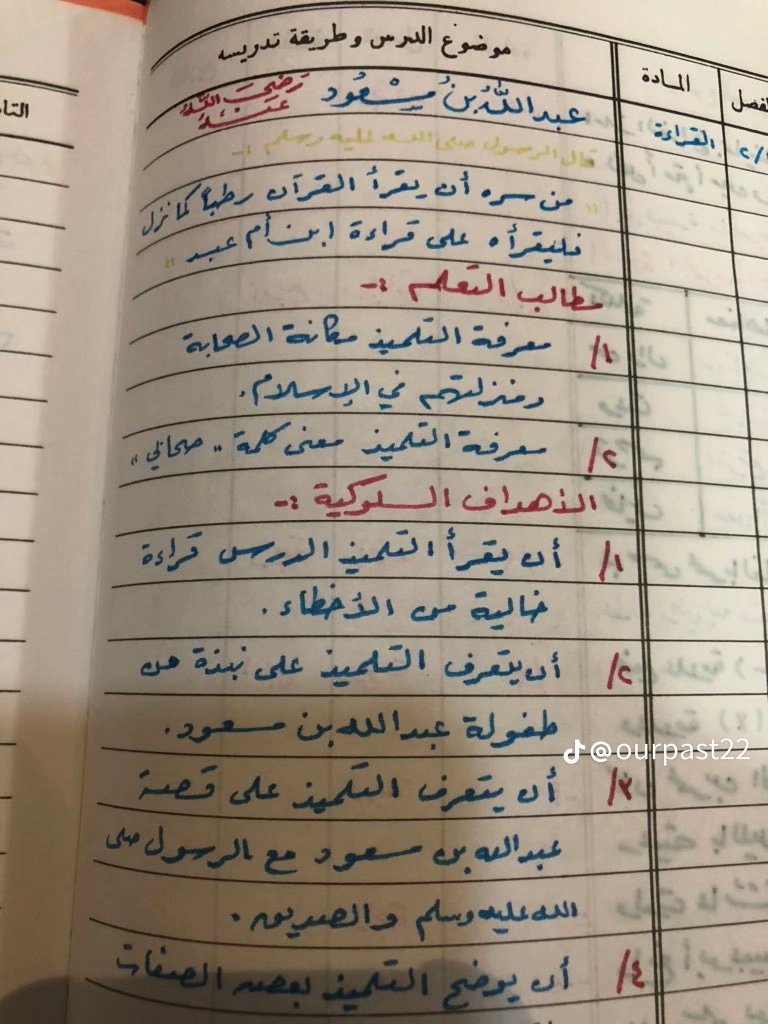 موضوع الدرس وطريقة تدريسه
المادة
الفصل
التا
عبد اللَّه بنُ مِسْعُود رَضِيَ اللَّهُ عَنْهُ
القراءة
٢/
قال الرسول صلى الله عليه وسلم :-
" من سره أن يقرأ القرآن رطباً كما نزل
فليقرأه على قراءة ابن أم عبد "
مطالب التعلم :-
١/ معرفة التلميذ مكانة الصحابة
ومنزلتهم في الإسلام.
٢/ معرفة التلميذ معنى كلمة " صحابي "
الأهداف السلوكية :-
١/ أن يقرأ التلميذ الدرس قراءة
خالية من الأخطاء .
٢/ أن يتعرف التلميذ على نبذة من
طفولة عبد الله بن مسعود .
٣/ أن يتعرف التلميذ على قصة
عبد الله بن مسعود مع الرسول صلى
الله عليه وسلم والصديق .
٤/ أن يوضح التلميذ بعض الصفات
@ourpast22